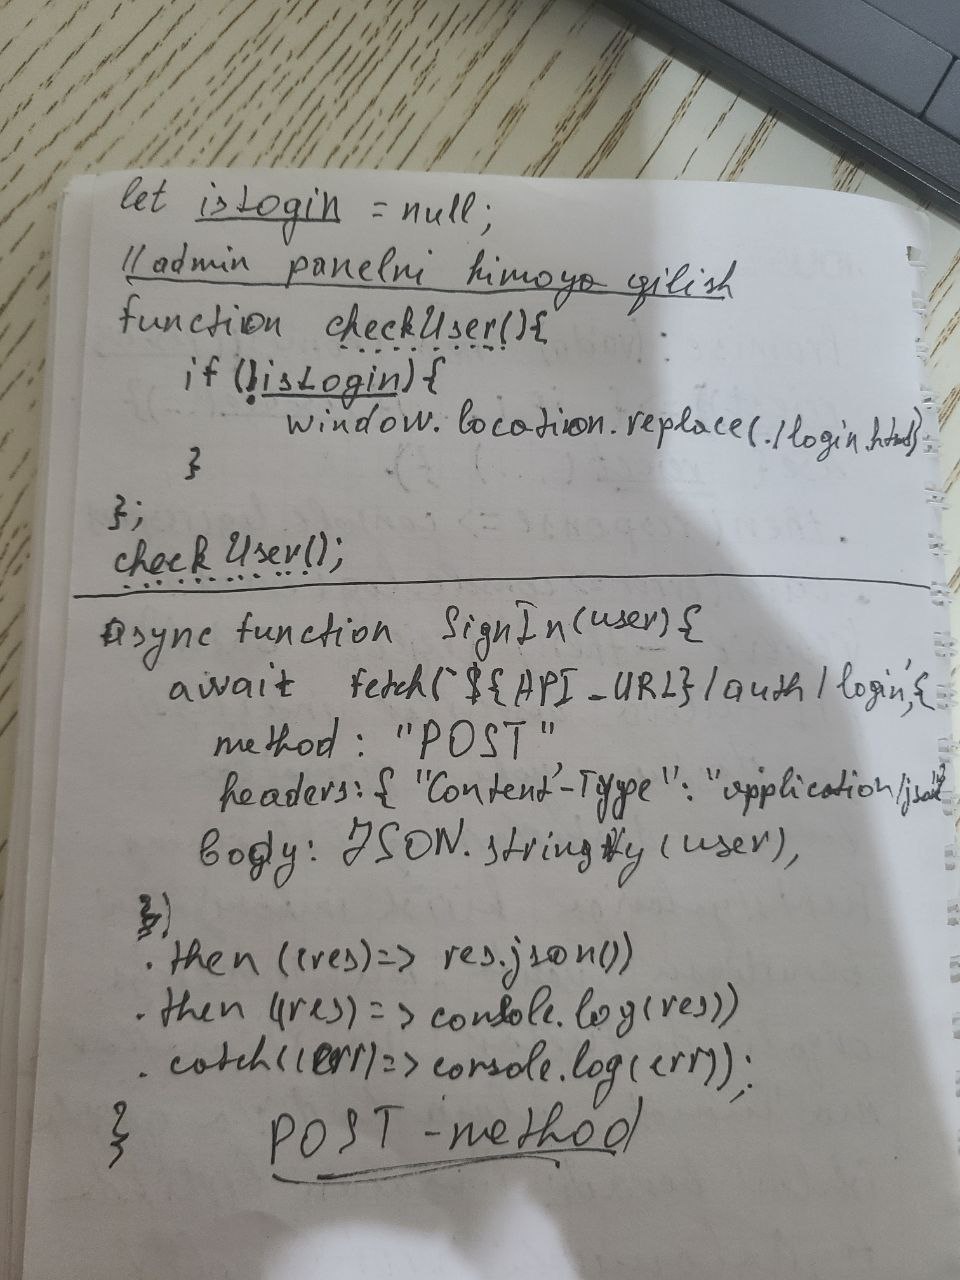 let isLogin = null;
//admin panelni himoya qilish
function checkUser(){
if(!isLogin){
window.location.replace(./login.html)
}
};
checkUser();
async function SignIn(user){
await fetch(`${API_URL}/auth/login`,{
method: "POST"
headers: { "Content-Type": "application/json"
body: JSON.stringify(user),
})
.then((res)=> res.json())
.then((res)=> console.log(res))
.catch((err)=> console.log(err));
}
POST-method